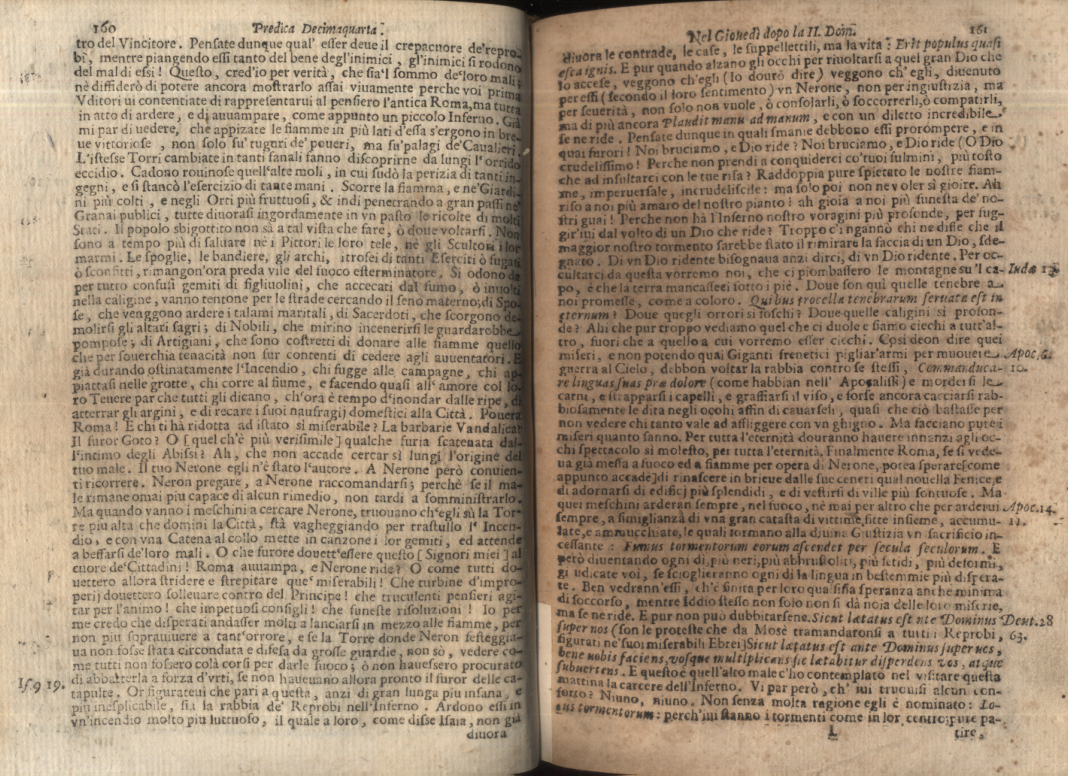 160 Predica Decimaquarta.
tro del Vincitore. Pensate dunque qual' esser deue il crepacuore de'repro-
bi, mentre piangendo essi tanto del bene degl'inimici, gl'inimici si rodono
del mal di essi! Questo, cred'io per verità, che sia'l sommo de'loro mali;
nè diffiderò di potere ancora mostrarlo assai viuamente perche voi prima
Vditori ui contentiate di rappresentarui al pensiero l'antica Roma, ma tutta
in atto di ardere, e di auuampare, come appunto un piccolo Inferno. Già
mi par di uedere, che appizate le fiamme in più lati d'essa s'ergono in bre-
ue vittoriose, non solo su'ruguri de'poueri, ma su'palagi de'Caualieri.
L'istesse Torri cambiate in tanti fanali fanno discoprirne da lungi l'orrido
eccidio. Cadono rouinose quell'alte moli, in cui sudò la perizia di tanti in-
gegni, e si stancò l'esercizio di tante mani. Scorre la fiamma, e ne'Giardi-
ni più colti, e negli Orti più fruttuosi, & indi penetrando a gran passi ne'
Granai publici, tutte diuorasi ingordamente in vn pasto le ricolte di molti
Stati. Il popolo sbigottito non sà a tal vista che fare, ò doue voltarsi. Non
sono a tempo più di saluare nè i Pittori le loro tele, nè gli Scultori i lor
marmi. Le spoglie, le bandiere, gli archi, i trofei di tanti Eserciti ò fugati
ò sconfitti, rimangon'ora preda vile del fuoco esterminatore. Si odono da
per tutto confusi gemiti di figliuolini, che accecati dal fumo, ò inuolti
nella caligine, vanno tentone per le strade cercando il seno materno; di Spo-
se, che veggono ardere i talami maritali, di Sacerdoti, che scorgono de-
molirsi gli altari sagri; di Nobili, che mirino incenerirsi le guardarobbe
pompose; di Artigiani, che sono costretti di donare alle fiamme quello
che per souerchia tenacità non fur contenti di cedere agli auuentatori. E
già durando ostinatamente l'Incendio, chi fugge alle campagne, chi ap-
piattasi nelle grotte, chi corre al fiume, e facendo quasi all'amore col lo-
ro Teuere par che tutti gli dicano, ch'ora è tempo d'inondar dalle ripe, di
atterrar gli argini, e di recare i suoi naufragij domestici alla Città. Pouera
Roma! E chi ti hà ridotta ad istato sì miserabile? La barbarie Vandalica?
Il furor Goto? O [quel ch'è più verisimile] qualche furia scatenata dal-
l'intimo degli Abissi? Ah, che non accade cercar sì lungi l'origine del
tuo male. Il tuo Nerone egli n'è stato l'autore. A Nerone però conuien-
ti ricorrere. Neron pregare, a Nerone raccomandarsi; perchè se il ma-
le rimane omai più capace di alcun rimedio, non tardi a somministrarlo.
Ma quando vanno i meschini a cercare Nerone, truouano ch'egli sù la Tor-
re più alta che domini la Città, stà vagheggiando per trastullo l'Incen-
dio, e con vna Catena al collo mette in canzone i lor gemiti, ed attende
a beffarsi de'loro mali. O che furore douett'essere questo [Signori miei] al
cuore de'Cittadini! Roma auuampa, e Nerone ride? O come tutti do-
uettero allora stridere e strepitare que' miserabili! Che turbine d'impro-
perij douettero solleuare contro del Principe! che truculenti pensieri agi-
tar per l'animo! che impetuosi consigli! che funeste risoluzioni! Io per
me credo che disperati andasser molti a lanciarsi in mezzo alle fiamme, per
non più soprauiuere a tant'orrore, e se la Torre donde Neron festeggia-
ua non fosse stata circondata e difesa da grosse guardie, non sò, vedere co-
me tutti non fossero colà corsi per darle fuoco; ò non hauessero procurato
di abbatterla a forza d'vrti, se non haueuano allora pronto il furor delle ca-
Is. 9 19. tapulte. Or figurateui che pari a questa, anzi di gran lunga più insana, e
più inesplicabile, sia la rabbia de' Reprobi nell'Inferno. Ardono essi in
vn'incendio molto più luttuoso, il quale a loro, come disse Isaia, non già
diuora
Nel Giouedì dopo la II. Dom. 161
diuora le contrade, le case, le suppellettili, ma la vita: Erit populus quasi
esca ignis. E pur quando alzano gli occhi per riuoltarsi a quel gran Dio che
lo accese, veggono ch'egli (lo dourò dire) veggono ch'egli, diuenuto
per essi (secondo il loro sentimento) vn Nerone, non per ingiustizia, ma
per seuerità, non solo non vuole, ò consolarli, ò soccorrerli, ò compatirli,
ma di più ancora Plaudit manu ad manum, e con un diletto incredibile
se ne ride. Pensate dunque in quali smanie debbono essi prorompere, e in
quai furori! Noi bruciamo, e Dio ride? Noi bruciamo, e Dio ride (O Dio
crudelissimo! Perche non prendi a conquiderci co'tuoi fulmini, più tosto
che ad insultarci con le tue risa? Raddoppia pure spietato le nostre fiam-
me, imperuersale, incrudeliscile: ma solo poi non ne voler sì gioire. Ah
riso a noi più amaro del nostro pianto! ah gioia a noi più funesta de' no-
stri guai! Perche non hà l'Inferno nostro voragini più profonde, per fug-
gir'ui dal volto di un Dio che ride? Troppo c'ingannò chi ne disse che il
maggior nostro tormento sarebbe stato il rimirare la faccia di un Dio, sde-
gnato. Di vn Dio ridente bisognaua anzi dirci, di vn Dio ridente. Per oc-
cultarci da questa vorremo noi, che ci piombassero le montagne su 'l ca- Iudæ 13.
po, e che la terra mancasseci sotto i piè. Doue son qui quelle tenebre a
noi promesse, come a coloro. Quibus procella tenebrarum seruata est in
æternum? Doue quegli orrori sì foschi? Doue quelle caligini sì profon-
de? Ahi che pur troppo vediamo quel che ci duole e siamo ciechi a tutt'al-
tro, fuori che a quello a cui vorremo esser ciechi. Così deon dire quei
miseri, e non potendo quai Giganti frenetici pigliar'armi per muouere Apoc. 6.
guerra al Cielo, debbon voltar la rabbia contro se stessi, Commanduca- 10.
re linguas suas præ dolore (come habbian nell' Apocalissi) e mordersi le
carni, e strapparsi i capelli, e graffiarsi il viso, e forse ancora cacciarsi rab-
biosamente le dita negli occhi affin di cauarseli, quasi che ciò bastasse per
non vedere chi tanto vale ad affliggere con vn ghigno. Ma facciano pure i
miseri quanto sanno. Per tutta l'eternità douranno hauere innanzi agli oc-
chi spettacolo sì molesto, per tutta l'eternità. Finalmente Roma, se si vede-
ua già messa a fuoco ed a fiamme per opera di Nerone, potea sperare[come
appunto accade]di rinascere in brieue dalle sue ceneri qual nouella Fenice, e
di adornarsi di edificj più splendidi, e di vestirsi di ville più sontuose. Ma
quei meschini arderan sempre, nel fuoco, nè mai per altro che per arderui Apoc. 14.
sempre, a simiglianza di vna gran catasta di vittime, fitte insieme, accumu- 11.
late, e ammucchiate, le quali formano alla diuina Giustizia vn sacrificio in-
cessante: Fumus tormentorum eorum ascendet per secula seculorum. E
però diuentando ogni dì, più neri, più abbrustoliti, più fetidi, più deformi,
giudicate voi, se scioglieranno ogni dì la lingua in bestemmie più dispera-
te. Ben vedrann'essi, ch'è finita per loro qualsisia speranza anche minima
di soccorso, mentre Iddio stesso non solo non si dà noia delle loro miserie,
ma se ne ride. E pur non può dubbitarsene. Sicut lætatus est ante Dominus Deut. 28
super uos (son le proteste che da Mosè tramandaronsi a tutti i Reprobi, 63.
figurati ne'suoi miserabili Ebrei) Sicut lætatus est ante Dominus super ues,
bene uobis faciens, vosque multiplicans sic lætabitur disperdens vos, atque
subuertens. E questo è quell'alto male c'ho contemplato nel visitare questa
mattina la carcere dell'Inferno. Vi par però, ch' iui truouisi alcun con-
forto? Niuno, niuno. Non senza molta ragione egli è nominato: Lo-
cus tormentorum: perch'iui stanno i tormenti come in lor centro; pure pa-
L tire,